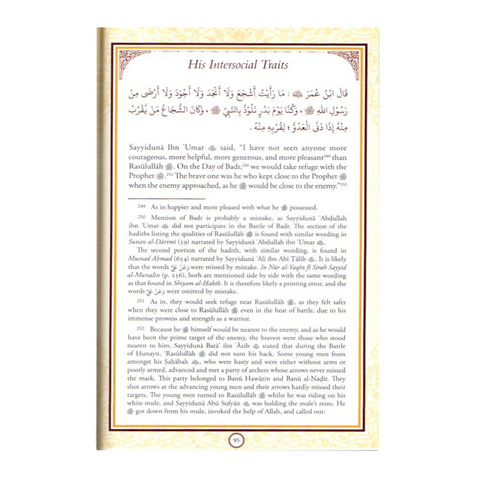 His Intersocial Traits
قَالَ ابْنُ عُمَرَ ﷺ : مَا رَأَيْتُ أَشْجَعَ وَلَا أَنْجَدَ وَلَا أَجْوَدَ وَلَا أَرْضَى مِنْ
رَسُولِ اللهِ ﷺ ، وَكُنَّا يَوْمَ بَدْرٍ نَلُوذُ بِالنَّبِيِّ ﷺ ، وَكَانَ الشُّجَاعُ مَنْ يَقْرُبُ
مِنْهُ إِذَا دَنَى الْعَدُوُّ ؛ لِقُرْبِهِ مِنْهُ .
Sayyidunā Ibn ʿUmar said, "I have not seen anyone more
courageous, more helpful, more generous, and more pleasant²⁴⁹ than
Rasūlullāh ﷺ. On the Day of Badr,²⁵⁰ we would take refuge with the
Prophet ﷺ.²⁵¹ The brave one was he who kept close to the Prophet ﷺ
when the enemy approached, as he ﷺ would be close to the enemy."²⁵²
249 As in happier and more pleased with what he ﷺ possessed.
250 Mention of Badr is probably a mistake, as Sayyidunā ʿAbdullah
ibn ʿUmar did not participate in the Battle of Badr. The section of the
hadiths listing the qualities of Rasūlullāh ﷺ is found with similar wording in
Sunan al-Dārimī (59) narrated by Sayyidunā ʿAbdullah ibn ʿUmar
The second portion of the hadith, with similar wording, is found in
Musnad Aḥmad (654) narrated by Sayyidunā ʿAlī ibn Abī Ṭālib. It is likely
that the words وَعَنْ عَلِيٍّ were missed by mistake. In Nūr al-Yaqīn fī Sīrah Sayyid
al-Mursalīn (p. 256), both are mentioned side by side with the same wording
as that found in Shiyam al-Ḥabīb. It is therefore likely a printing error, and the
words وَعَنْ عَلِيٍّ were omitted by mistake.
251 As in, they would seek refuge near Rasūlullāh ﷺ, as they felt safer
when they were close to Rasūlullāh ﷺ even in the heat of battle, due to his
immense prowess and strength as a warrior.
252 Because he ﷺ himself would be nearest to the enemy, and as he would
have been the prime target of the enemy, the bravest were those who stood
nearest to him. Sayyidunā Barāʾ ibn ʿĀzib stated that during the Battle
of Ḥunayn, "Rasūlullāh ﷺ did not turn his back. Some young men from
amongst his Ṣaḥābah, who were hasty and were either without arms or
poorly armed, advanced and met a party of archers whose arrows never missed
the mark. This party belonged to Banū Hawāzin and Banū al-Naḍīr. They
shot arrows at the advancing young men and their arrows hardly missed their
targets. The young men turned to Rasūlullāh ﷺ whilst he was riding on his
white mule, and Sayyidunā Abū Sufyān was holding the mule's reins. He
ﷺ got down from his mule, invoked the help of Allah, and called out:
95